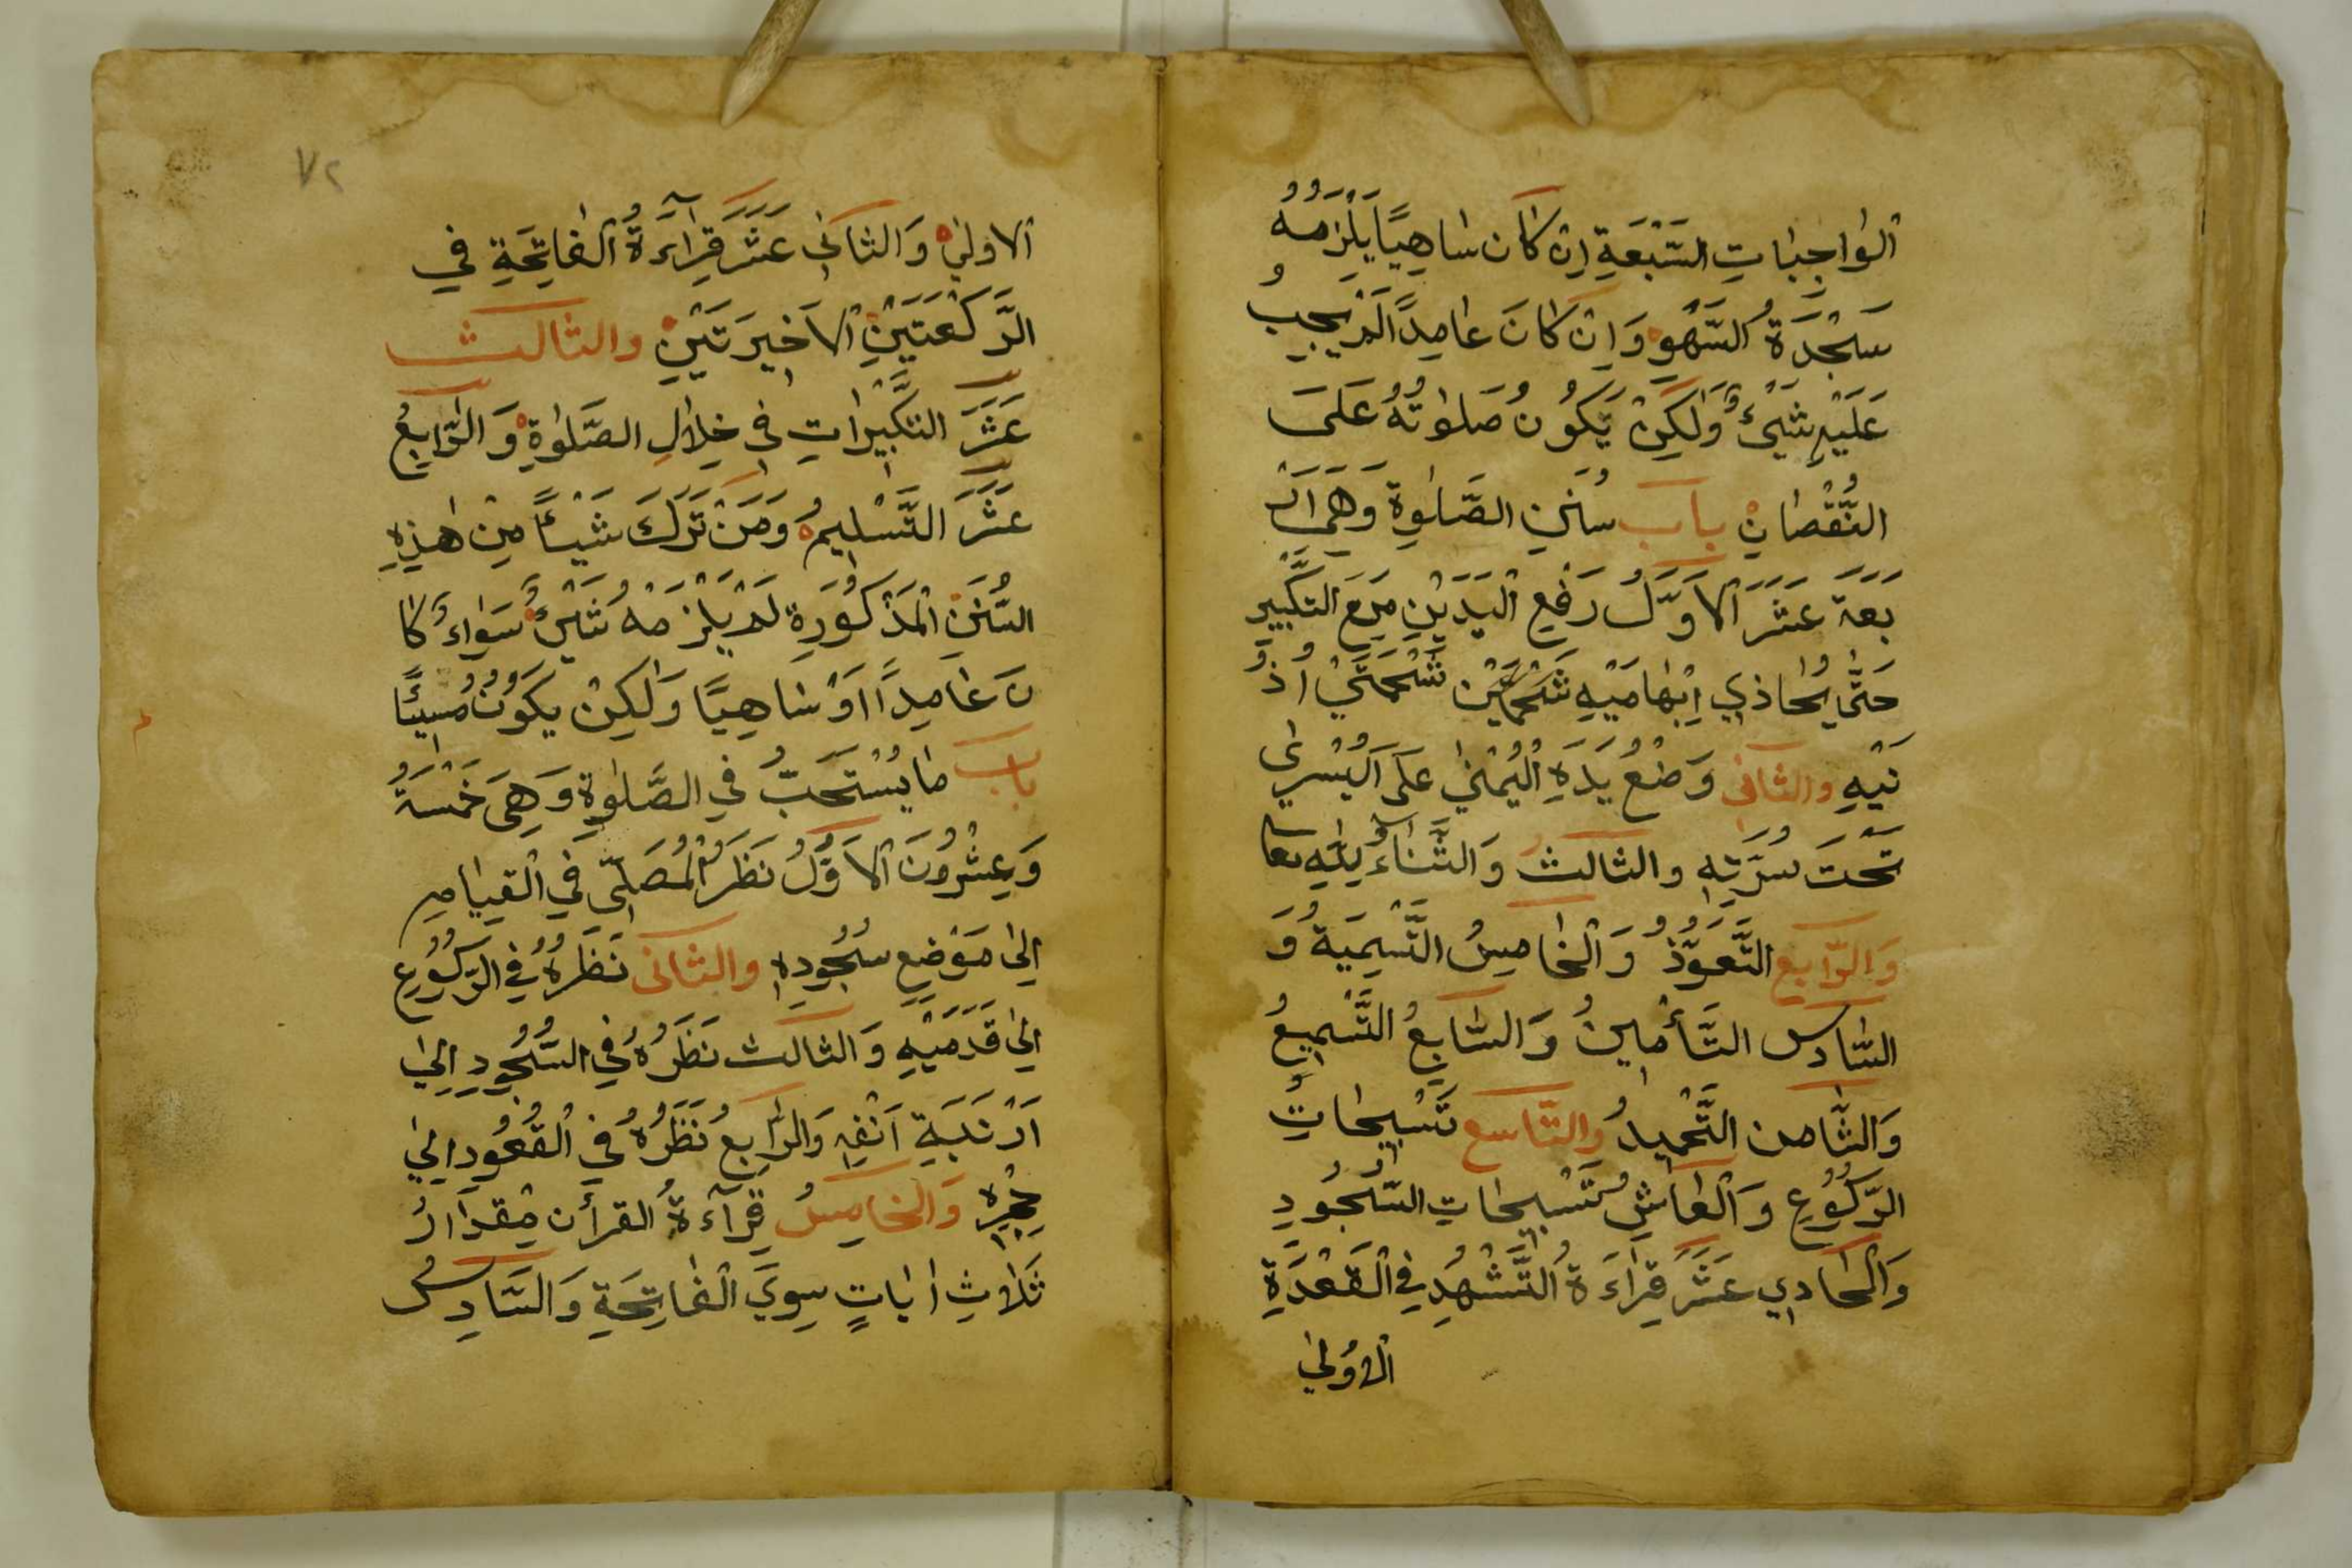 اَلْواجِباتِ السَّبْعَةِ اِنْ كَانَ سَاهِيًا يَلْزَمُهُ
سَجْدَةُ السَّهْوِ وَاِنْ كَانَ عَامِدًا لَمْ يَجِبْ
عَلَيْهِ شَيْئٌ وَلٰكِنْ يَكُونُ صَلٰوتُهُ عَلَى
النُّقْصَانِ باب سُنَنِ الصَّلٰوةِ وَهِيَ اَرْ
بَعَةَ عَشَرَ اَلْاَوَّلُ رَفْعِ الْيَدَيْنِ مَعَ التَّكْبِيرِ
حَتَّى يُحَاذِي اِبْهَامَيْهِ شَحْمَتَيْنِ شَحْمَتَيْ اُذُ
نَيْهِ والثانى وَضْعُ يَدَهِ الْيُمْنٰى عَلَى الْيُسْرٰى
تَحْتَ سُرَّتِهِ والثالثُ وَالثَّنَاءُ لِلّٰهِ تعا
وَالرّابع التَّعَوُّذُ وَالْخَامِسُ التَّسْمِيَةُ وَ
السَّادس التَّأْمِينُ وَالسَّابِعُ التَّسْمِيعُ
وَالثَّامن التَّحْمِيدُ والتاسع تَسْبِيحَاتِ
الرُّكُوعِ وَالْعَاشِرُ تَسْبِيحَاتِ السُّجُودِ
وَالْحَادِي عَشَرَ قِرَاءَةُ التَّشَهُّدِ فِي الْقَعْدَةِ
الْاُولٰي
الاولٰي وَالثانِي عَشَرَ قِرَآءَةُ الْفَاتِحَةِ فِي
الرَّكْعَتَيْنِ الْاَخِيرَتَيْنِ والثالث
عَشَرَ التَّكْبِيرَاتِ فِي خِلَالِ الصَّلٰوةِ وَالرَّابِعُ
عَشَرَ التَّسْلِيمُ وَمَنْ تَرَكَ شَيْئًا مِنْ هٰذِهِ
السُّنَنِ الْمَذْكُورَةِ لَمْ يَلْزَمْهُ شَيْئٌ سَوَاءٌ كَا
نَ عَامِدًا اَوْ سَاهِيًا وَلٰكِنْ يَكُونُ مُسِيئًا
باب مَا يُسْتَحَبُّ فِي الصَّلٰوةِ وَهِيَ خَمْسَةُ
وَعِشْرُونَ اَلْاَوَّلُ نَظَرُ الْمُصَلِّى فِي الْقِيَامِ
اِلٰي مَوْضِعِ سُجُودِهِ والثانى نَظَرُهُ فِي الرُّكُوعِ
اِلٰي قَدَمَيْهِ وَالثالث نَظَرُهُ فِي السُّجُودِ اِلٰي
اَرْنَبَةِ اَنْفِهِ وَالرَّابِعُ نَظَرُهُ فِي الْقُعُودِ اِلٰي
حِجْرِهِ وَالْخَامِسُ قِرَآءَةُ القرأن مِقْدَارُ
ثَلَاثِ اٰيَاتٍ سِوَي الْفَاتِحَةِ وَالسَّادِسُ
٧٢